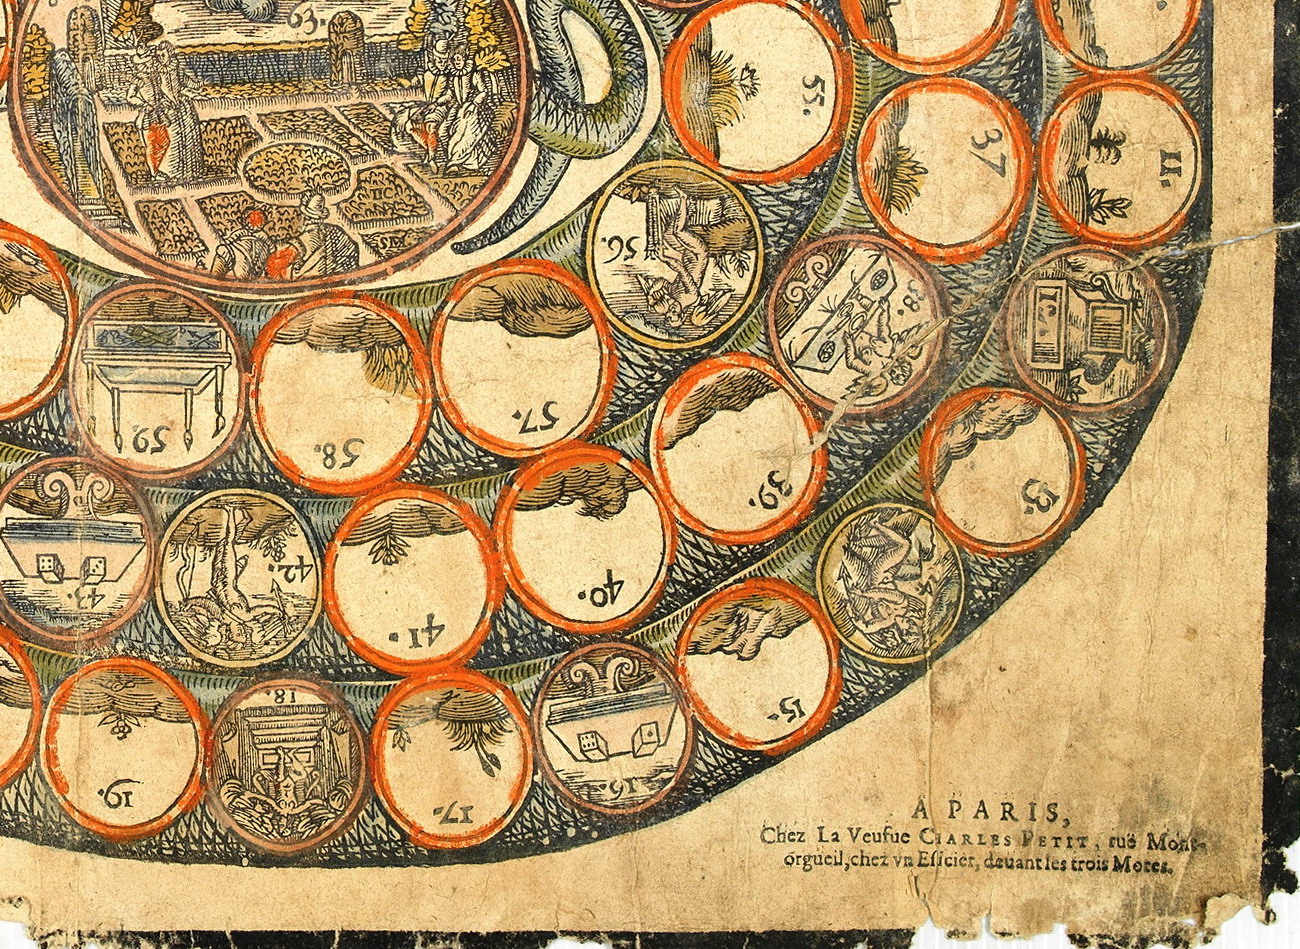 63.
HC
SM
55.
37
11.
56.
38.
59.
58.
57.
39.
13.
43.
42.
41.
40.
15.
19.
18.
17.
16.
A PARIS,
Chez La Veufue CHARLES PETIT, ruë Mont-
orgueil, chez vn Espicier, deuant les trois Mores.